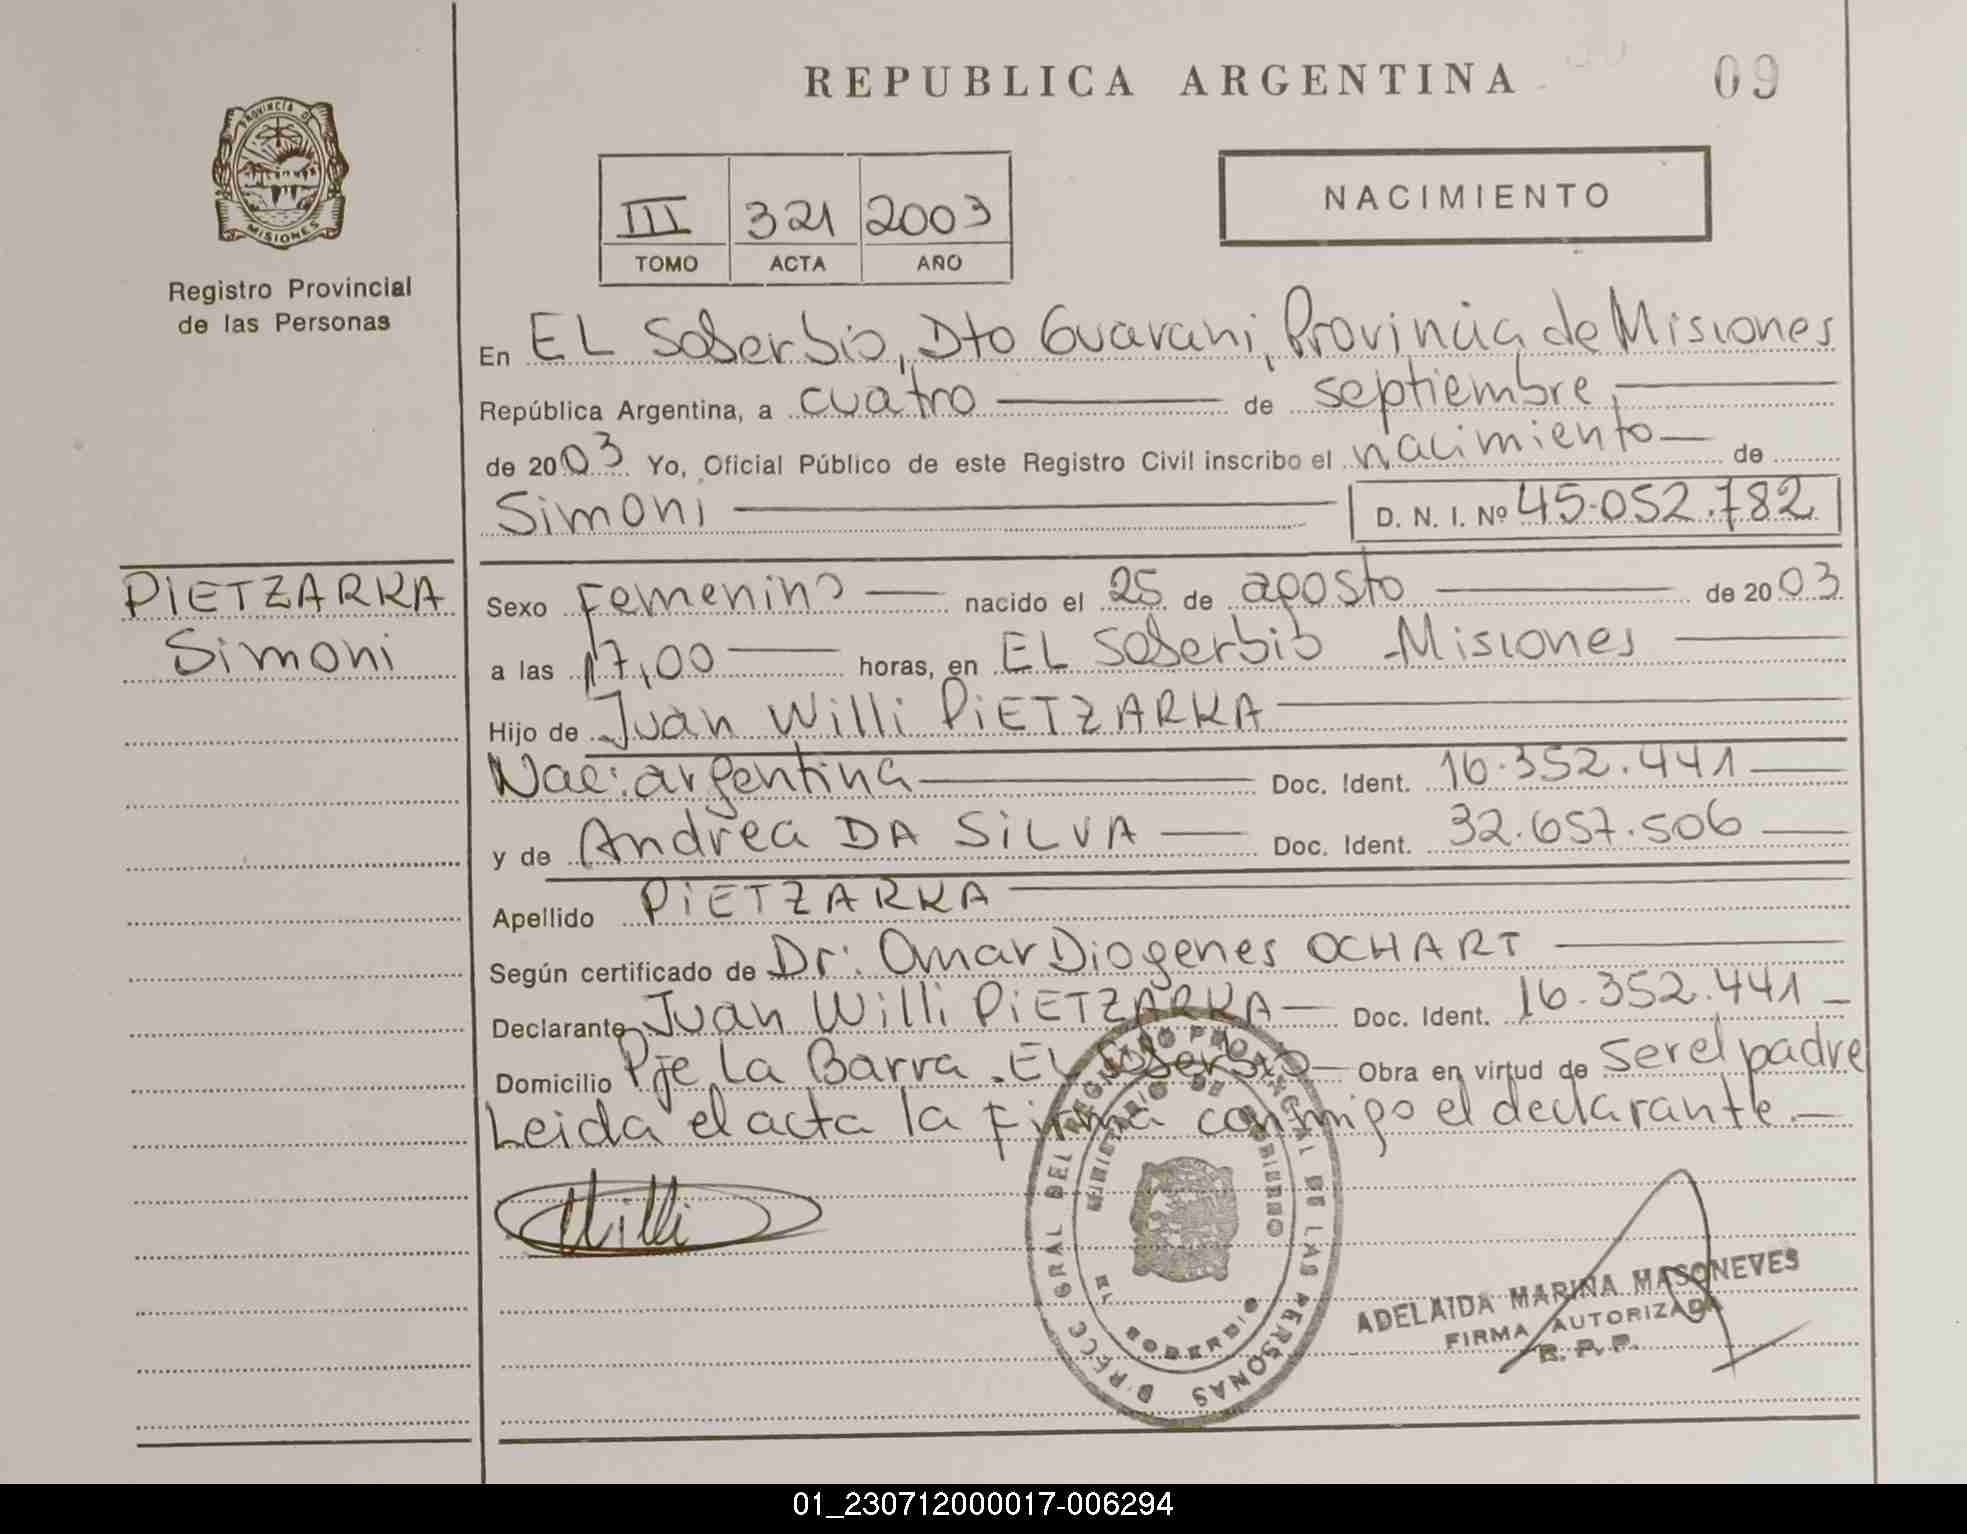 REPUBLICA ARGENTINA
09
PROVINCIA DE
MISIONES
Registro Provincial
de las Personas
III 321 2003
TOMO ACTA AÑO
NACIMIENTO
En EL Soberbio, Dto Guarani, Provincia de Misiones
República Argentina, a cuatro de septiembre,
de 2003 Yo, Oficial Público de este Registro Civil inscribo el nacimiento de
Simoni
D. N. I. Nº 45.052.782
PIETZARKA
Simoni
Sexo Femenino nacido el 25 de agosto de 2003
a las 17,00 horas, en EL Soberbio Misiones
Hijo de Juan Willi PIETZARKA
Nac: argentina Doc. Ident. 16.352.441
y de Andrea DA SILVA Doc. Ident. 32.657.506
Apellido PIETZARKA
Según certificado de Dr: Omar Diogenes OCHART
Declarante Juan Willi PIETZARKA Doc. Ident. 16.352.441
Domicilio Pje La Barra. EL Soberbio Obra en virtud de ser el padre
Leida el acta la firma conmigo el declarante.
Willi
DIRECC GRAL DEL REGISTRO PROVINCIAL DE LAS PERSONAS
MINISTERIO DE GOBIERNO
EL SOBERBIO
ADELAIDA MARINA MASONEVES
FIRMA AUTORIZADA
R. P. P.
01_230712000017-006294